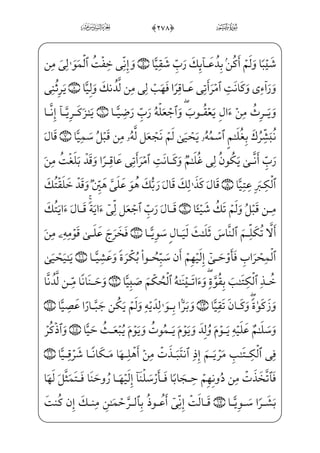 شَيْبًا وَلَمْ أَكُنۢ بِدُعَآئِكَ رَبِّ شَقِيًّا ۝ وَإِنِّى خِفْتُ ٱلْمَوَٰلِىَ مِن
وَرَآءِى وَكَانَتِ ٱمْرَأَتِى عَاقِرًا فَهَبْ لِى مِن لَّدُنكَ وَلِيًّا ۝ يَرِثُنِى
وَيَرِثُ مِنْ ءَالِ يَعْقُوبَ ۖ وَٱجْعَلْهُ رَبِّ رَضِيًّا ۝ يَٰزَكَرِيَّآ إِنَّا
نُبَشِّرُكَ بِغُلَٰمٍ ٱسْمُهُۥ يَحْيَىٰ لَمْ نَجْعَل لَّهُۥ مِن قَبْلُ سَمِيًّا ۝ قَالَ
رَبِّ أَنَّىٰ يَكُونُ لِى غُلَٰمٌ وَكَانَتِ ٱمْرَأَتِى عَاقِرًا وَقَدْ بَلَغْتُ مِنَ
ٱلْكِبَرِ عِتِيًّا ۝ قَالَ كَذَٰلِكَ قَالَ رَبُّكَ هُوَ عَلَىَّ هَيِّنٌ وَقَدْ خَلَقْتُكَ
مِن قَبْلُ وَلَمْ تَكُ شَيْـًٔا ۝ قَالَ رَبِّ ٱجْعَل لِّىٓ ءَايَةً ۚ قَالَ ءَايَتُكَ
أَلَّا تُكَلِّمَ ٱلنَّاسَ ثَلَٰثَ لَيَالٍ سَوِيًّا ۝ فَخَرَجَ عَلَىٰ قَوْمِهِۦ مِنَ
ٱلْمِحْرَابِ فَأَوْحَىٰٓ إِلَيْهِمْ أَن سَبِّحُوا۟ بُكْرَةً وَعَشِيًّا ۝ يَٰيَحْيَىٰ
خُذِ ٱلْكِتَٰبَ بِقُوَّةٍ ۖ وَءَاتَيْنَٰهُ ٱلْحُكْمَ صَبِيًّا ۝ وَحَنَانًا مِّن لَّدُنَّا
وَزَكَوٰةً ۖ وَكَانَ تَقِيًّا ۝ وَبَرًّۢا بِوَٰلِدَيْهِ وَلَمْ يَكُن جَبَّارًا عَصِيًّا ۝
وَسَلَٰمٌ عَلَيْهِ يَوْمَ وُلِدَ وَيَوْمَ يَمُوتُ وَيَوْمَ يُبْعَثُ حَيًّا ۝ وَٱذْكُرْ
فِى ٱلْكِتَٰبِ مَرْيَمَ إِذِ ٱنتَبَذَتْ مِنْ أَهْلِهَا مَكَانًا شَرْقِيًّا ۝
فَٱتَّخَذَتْ مِن دُونِهِمْ حِجَابًا فَأَرْسَلْنَآ إِلَيْهَا رُوحَنَا فَتَمَثَّلَ لَهَا
بَشَرًا سَوِيًّا ۝ قَالَتْ إِنِّىٓ أَعُوذُ بِٱلرَّحْمَٰنِ مِنكَ إِن كُنتَ